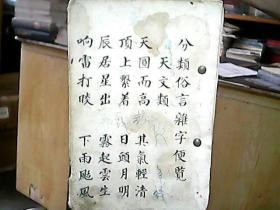 分類俗言雜字便覽
天文類
天圓而高 其氣輕清
頂上繫着 日頭月明
辰居星出 霧起雲生
响雷打晱 下雨颳風